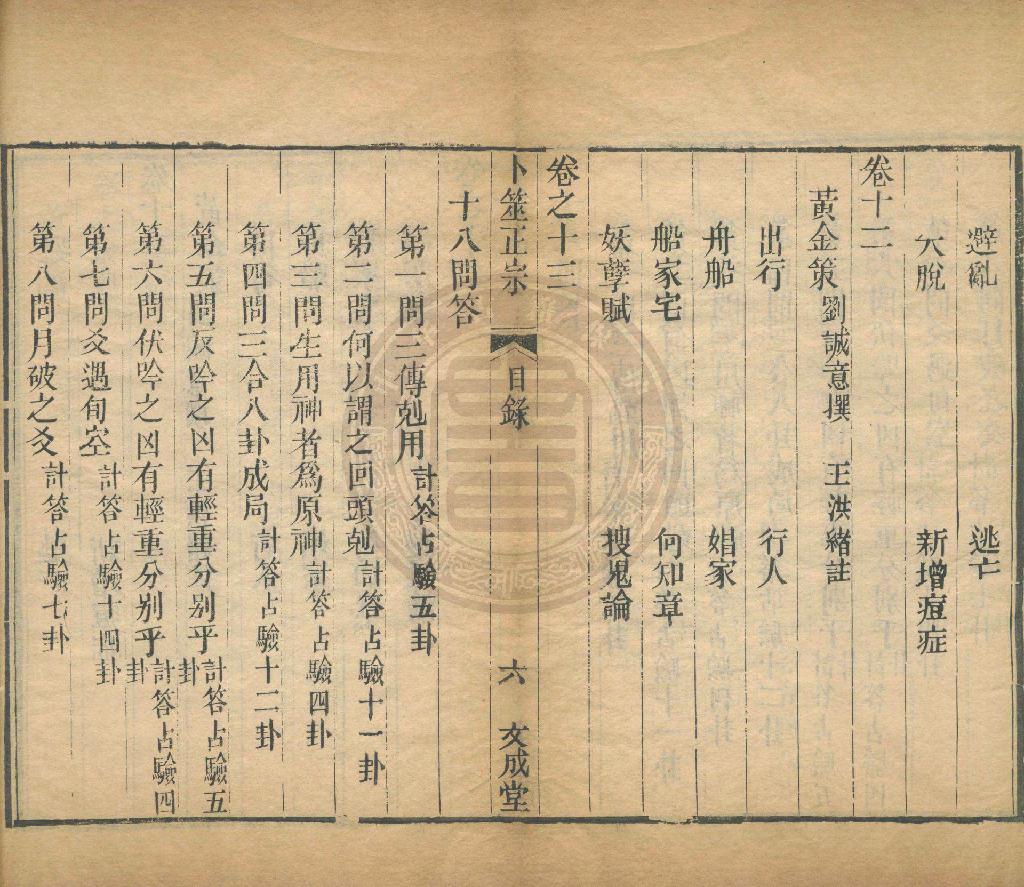 避亂　逃亡
大脫　新增痘症
卷十二
黃金策 劉誠意撰　王洪緒註
出行　行人
舟船　娼家
船家宅　何知章
妖孽賦　搜鬼論
卷之十三
卜筮正宗　目錄　六　文成堂
十八問答
第一問三傳剋用 計答占驗五卦
第二問何以謂之回頭剋 計答占驗十一卦
第三問生用神者爲原神 計答占驗四卦
第四問三合八卦成局 計答占驗十二卦
第五問反吟之凶有輕重分别乎 計答占驗五卦
第六問伏吟之凶有輕重分别乎 計答占驗四卦
第七問爻遇旬空 計答占驗十四卦
第八問月破之爻 計答占驗七卦